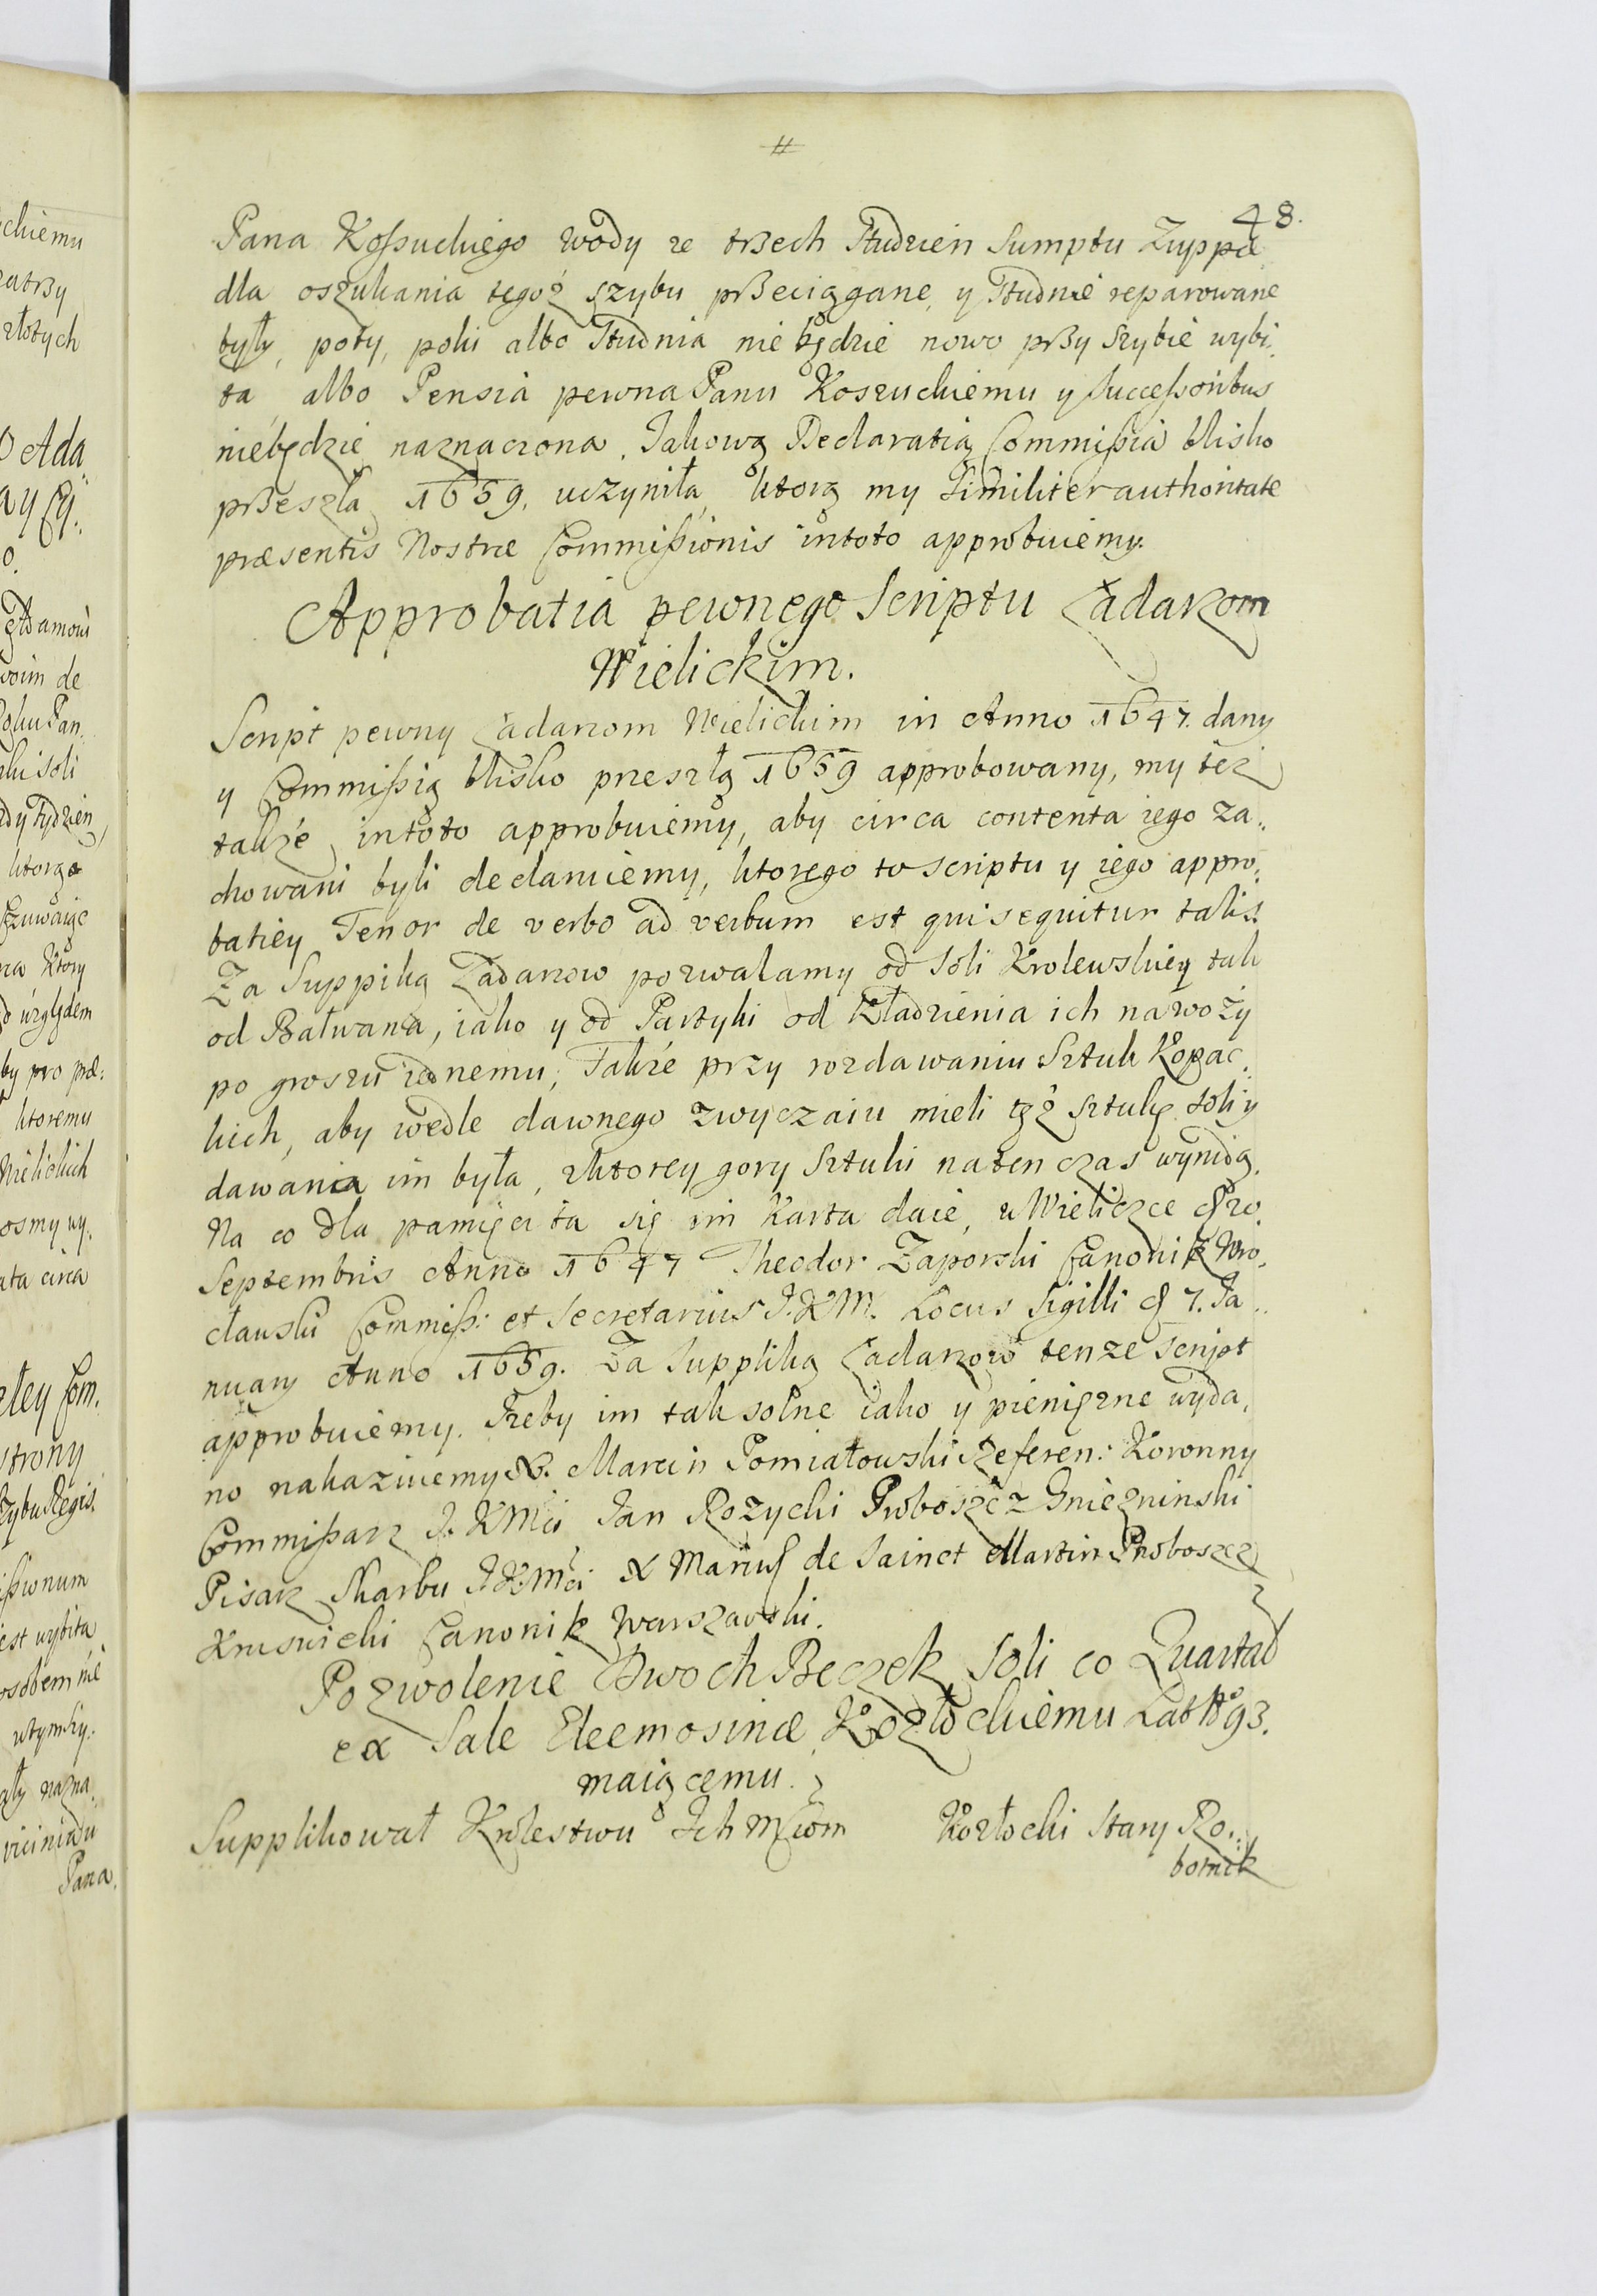 48.
Pana Koſsuckiego wody ze trzech Studzien Sumptu Zuppæ
dla oszukania tegoż szybu przeciągane, y Studnie reparowane
były, poty, poki albo Studnia nie będzie nowo przy Szybie wybi,
ta, albo Pensia pewna Panu Koszuckiemu y Succeſsoribus
niebędzie naznaczona. Jakową Declaratią Commiſsia blisko
przeszła 1659. uczyniła, ktorą my Similiter authoritate
præsentis Nostræ Commiſsionis intoto approbuiemy.
Approbatia pewnego Scriptu Ładarzom
Wielickim.
Script pewny Ładarzom Wielickim in Anno 1647. dany
y Commiſsią blisko przeszłą 1659 approbowany, my też
także intoto approbuiemy, aby circa contenta iego za,,
chowani byli declaruiemy, ktorego to scriptu y iego appro,
batiey Tenor de verbo ad verbum est qui sequitur talis.
Za Suppiką Ładarzow pozwalamy od Soli Krolewskiey tak
od Bałwana, iako y od Partyki od kładzienia ich nawozy
po groszu iednemu, Także przy rozdawaniu Sztuk Kopac,
kich, aby wedle dawnego zwyczaiu mieli tęż sztukę soli y
dawania im była, zktorey gory Sztuki natenczas wynidą.
Na co dla pamięci ta się im Karta daie, w Wieliczce
Septembris Anno 1647 Theodor Zaporski Canonik Wro,
cławski Commiſs: et Secretarius J.KM. Locus Sigilli 7. Ja,,
nuary Anno 1659. Za Suppliką Ładarzow tenze script
approbuiemy. Zeby im tak solne iako y pieniężne wyda,
no nakazuiemy &. Marcin Pomiatowski Referen: Koronny
Commiſsarz J. KMći Jan Rozycki Proboszcz Gniezninski
Pisarz Skarbu J.K.Mći & Marius de Sainct Martin Proboszcz
Krusuicki Canonik Warszawski.
Pozwolenie Dwoch Beczek Soli co Quartał
ex Sale Eleemosinæ Kozłockiemu Lat 93.
maiącemu.
Supplikował Krolestwu Ich Mćiom Kozłocki Stary Ro,,
botnik